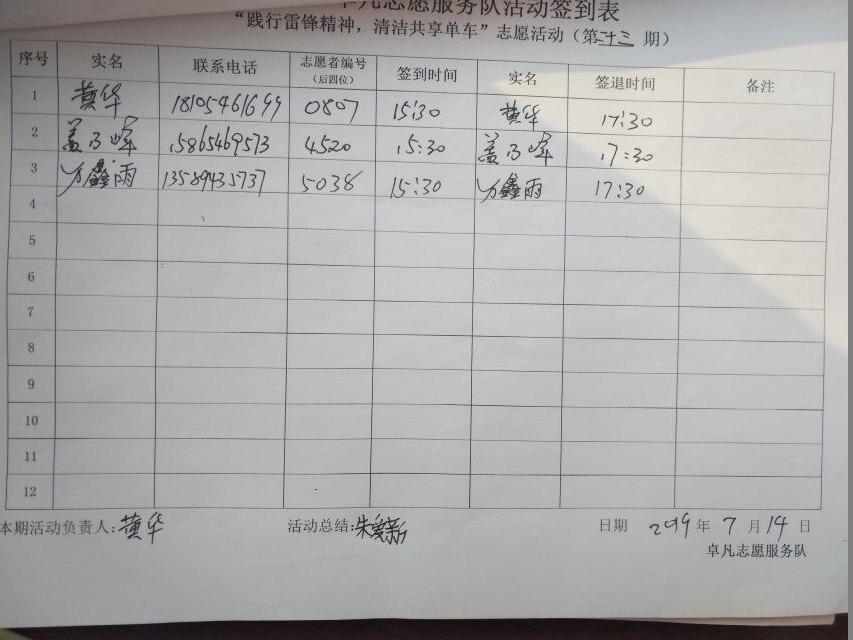 卓凡志愿服务队活动签到表
“践行雷锋精神，清洁共享单车”志愿活动（第二十三 期）
序号 实名 联系电话 志愿者编号（后四位） 签到时间 实名 签退时间 备注
1 黄华 18105461699 0807 15:30 黄华 17:30
2 盖乃峰 15865469573 4520 15:30 盖乃峰 17:30
3 万鑫雨 13589435737 5038 15:30 万鑫雨 17:30
4
5
6
7
8
9
10
11
12
本期活动负责人:黄华 活动总结:朱爱新 日期 2019 年 7 月 14 日
卓凡志愿服务队